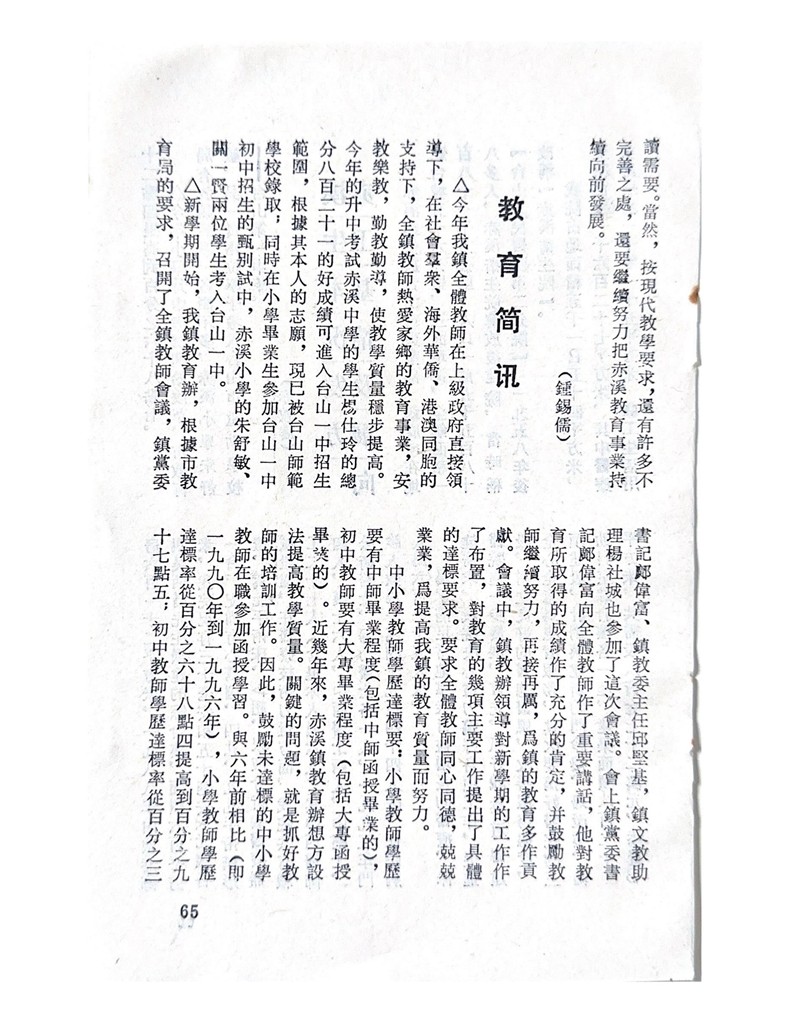 讀需要。當然，按現代教學要求，還有許多不
完善之處，還要繼續努力把赤溪教育事業持
續向前發展。
（鍾錫儒）
教育简讯
△今年我鎮全體教師在上級政府直接領
導下，在社會羣衆、海外華僑、港澳同胞的
支持下，全鎮教師熱愛家鄉的教育事業，安
教樂教，勤教勤導，使教學質量穩步提高。
今年的升中考試赤溪中學的學生楊仕玲的總
分八百二十一的好成績可進入台山一中招生
範圍，根據其本人的志願，現已被台山師範
學校錄取，同時在小學畢業生參加台山一中
初中招生的甄別試中，赤溪小學的朱舒敏、
關一賢兩位學生考入台山一中。
△新學期開始，我鎮教育辦，根據市教
育局的要求，召開了全鎮教師會議，鎮黨委
書記鄺偉富、鎮教委主任邱堅基，鎮文教助
理楊社城也參加了這次會議。會上鎮黨委書
記鄺偉富向全體教師作了重要講話，他對教
育所取得的成績作了充分的肯定，并鼓勵教
師繼續努力，再接再厲，爲鎮的教育多作貢
獻。會議中，鎮教辦領導對新學期的工作作
了布置，對教育的幾項主要工作提出了具體
的達標要求。要求全體教師同心同德，兢兢
業業，爲提高我鎮的教育質量而努力。
中小學教師學歷達標要，小學教師學歷
要有中師畢業程度（包括中師函授畢業的），
初中教師要有大專畢業程度（包括大專函授
畢業的）。近幾年來，赤溪鎮教育辦想方設
法提高教學質量。關鍵的問題，就是抓好教
師的培訓工作。因此，鼓勵未達標的中小學
教師在職參加函授學習。與六年前相比（即
一九九〇年到一九九六年），小學教師學歷
達標率從百分之六十八點四提高到百分之九
十七點五，初中教師學歷達標率從百分之三
65